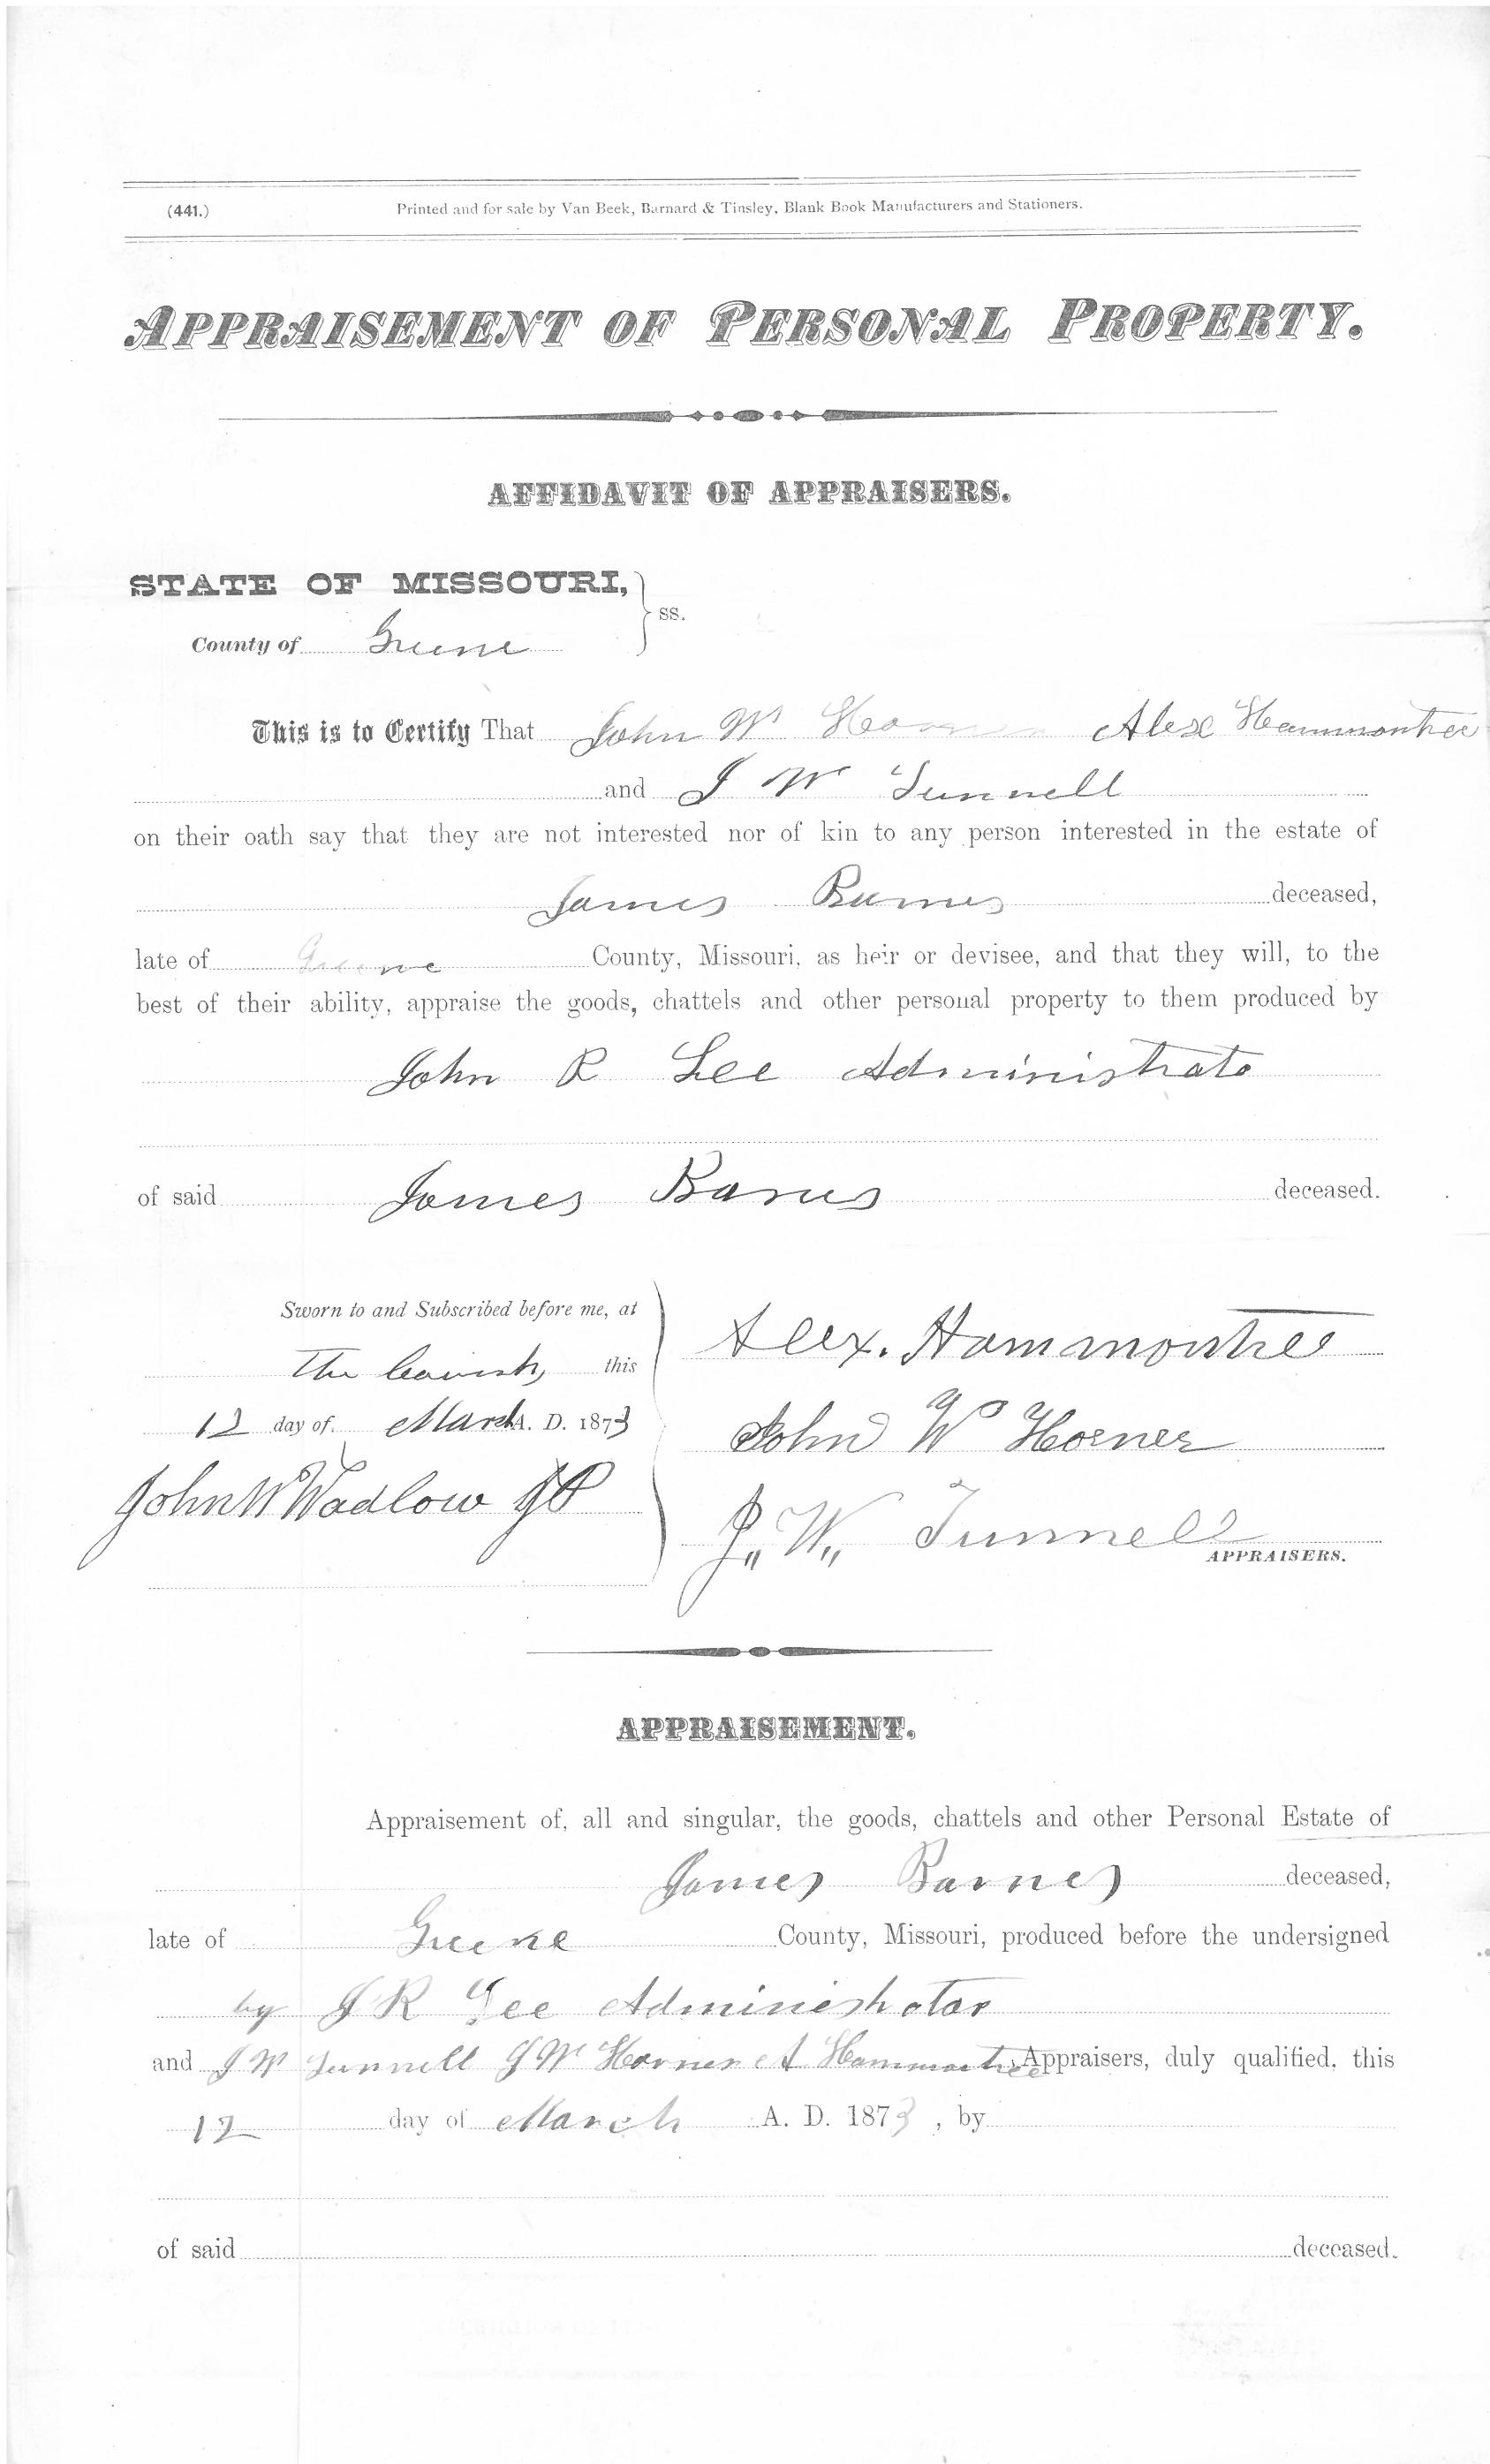 (441.) Printed and for sale by Van Beek, Barnard & Tinsley, Blank Book Manufacturers and Stationers.
APPRAISEMENT OF PERSONAL PROPERTY.
AFFIDAVIT OF APPRAISERS.
STATE OF MISSOURI,
County of Greene ss.
This is to Certify That John W Horner Alex Hammontree
and J W Tunnell
on their oath say that they are not interested nor of kin to any person interested in the estate of
James Barnes deceased,
late of Greene County, Missouri, as heir or devisee, and that they will, to the
best of their ability, appraise the goods, chattels and other personal property to them produced by
John R Lee Administrato
of said James Barnes deceased.
Sworn to and Subscribed before me, at
The County this
12 day of March A. D. 1873
John W Wadlow JP
Alex. Hammontree
John W Horner
J. W. Tunnell
APPRAISERS.
APPRAISEMENT.
Appraisement of, all and singular, the goods, chattels and other Personal Estate of
James Barnes deceased,
late of Greene County, Missouri, produced before the undersigned
by J R Lee Administrator
and J W Tunnell J W Horner A Hammontree Appraisers, duly qualified, this
12 day of March A. D. 1873, by
of said deceased.